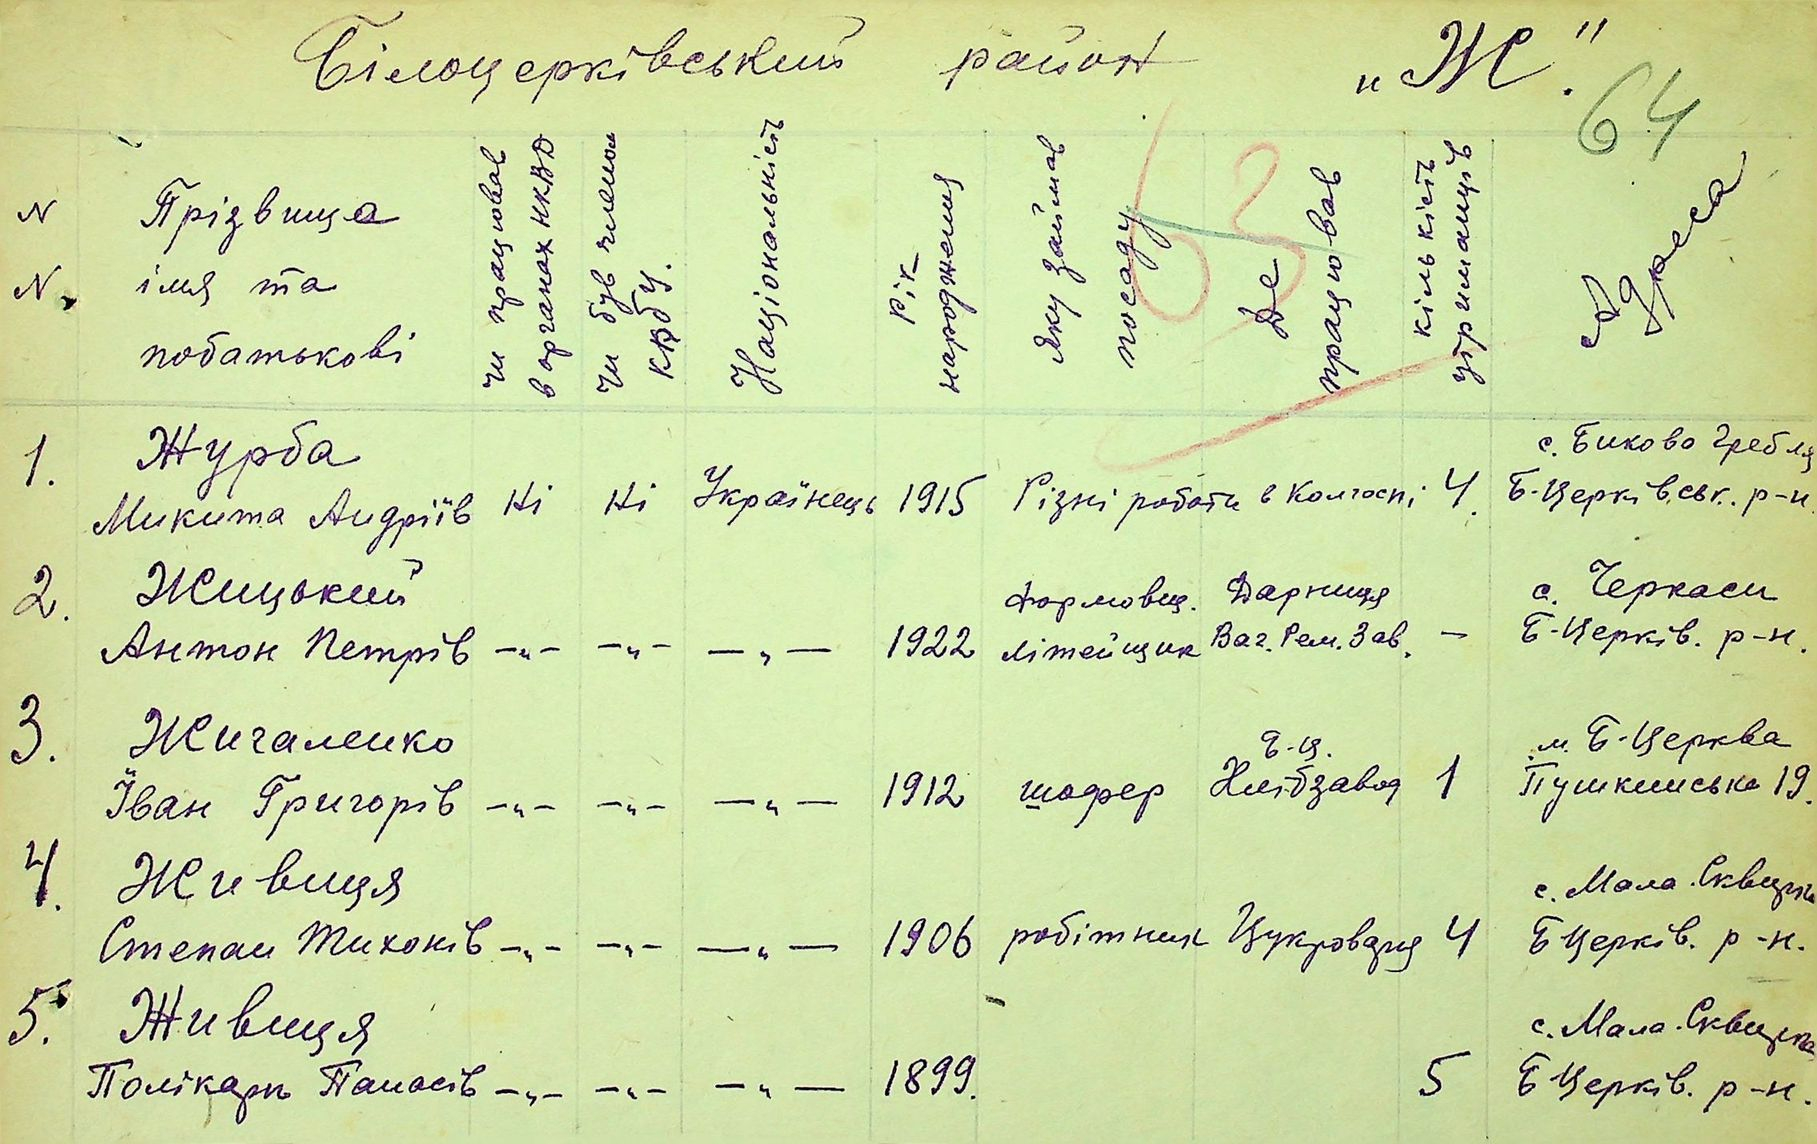 Білоцерківський район „Ж."
64
63
N
N
Прізвища
імя та
побатькові
Чи працював
в органах НКВД
Чи був членом
КПбУ.
Національність
Рік
народження
Яку займав
посаду
Де
працював
кількість
утриманців
Адреса
1. Журба
Микита Андріїв Ні Ні Українець 1915 Різні роботи в Колгоспі 4.
с. Бикова Гребля
Б-Церківськ. р-н.
2. Жицький
Антон Петрів -„- -„- -„- 1922
формовщ.
літейщик
Дарниця
Ваг. Рем. Зав. -
с. Черкаси
Б-Церків. р-н.
3. Жигаленко
Іван Григорів -„- -„- -„- 1912 шофер
Б-Ц.
Хлібзавод 1
м. Б-Церква
Пушкинська 19.
4. Живиця
Степан Тихонів -„- -„- -„- 1906 робітник Цукроварня 4
с. Мала Сквирка
Б Церків. р-н.
5. Живиця
Полікарп Панасів -„- -„- -„- 1899. 5
с. Мала Сквирка
Б Церків. р-н.